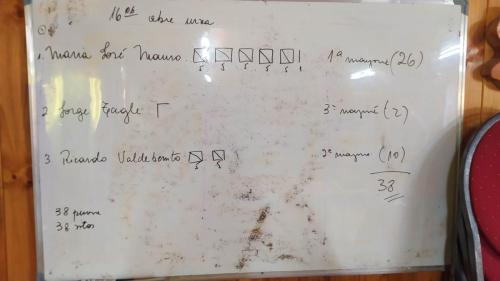 16 abre urna
1. Maria José Mauro 5 5 5 5 5 1 1ª mayoria (26)
2 Jorge Tagle 3ª mayoria (2)
3. Ricardo Valdebenito 5 5 2ª mayoria (10)
38
38
38 votos